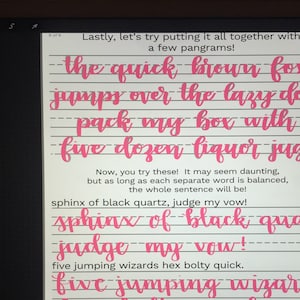 Lastly, let's try putting it all together with
a few pangrams!
the quick brown fox
jumps over the lazy do
pack my box with
five dozen liquor jug
Now, you try these! It may seem daunting,
but as long as each separate word is balanced,
the whole sentence will be!
sphinx of black quartz, judge my vow!
sphinx of black qua
judge my vow!
five jumping wizards hex bolty quick.
five jumping wizar